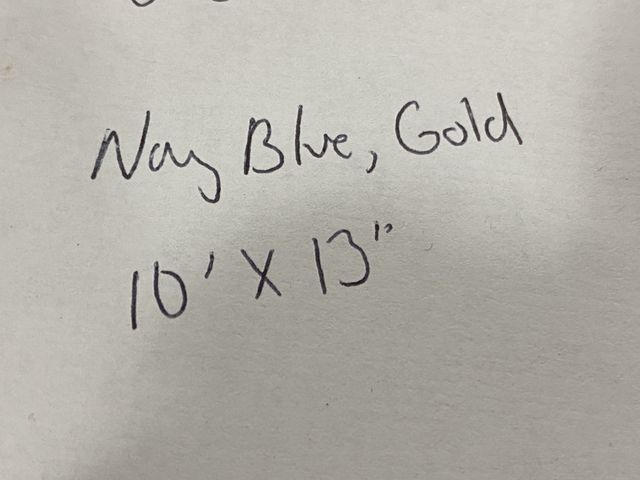 Navy Blue, Gold
10' X 13"